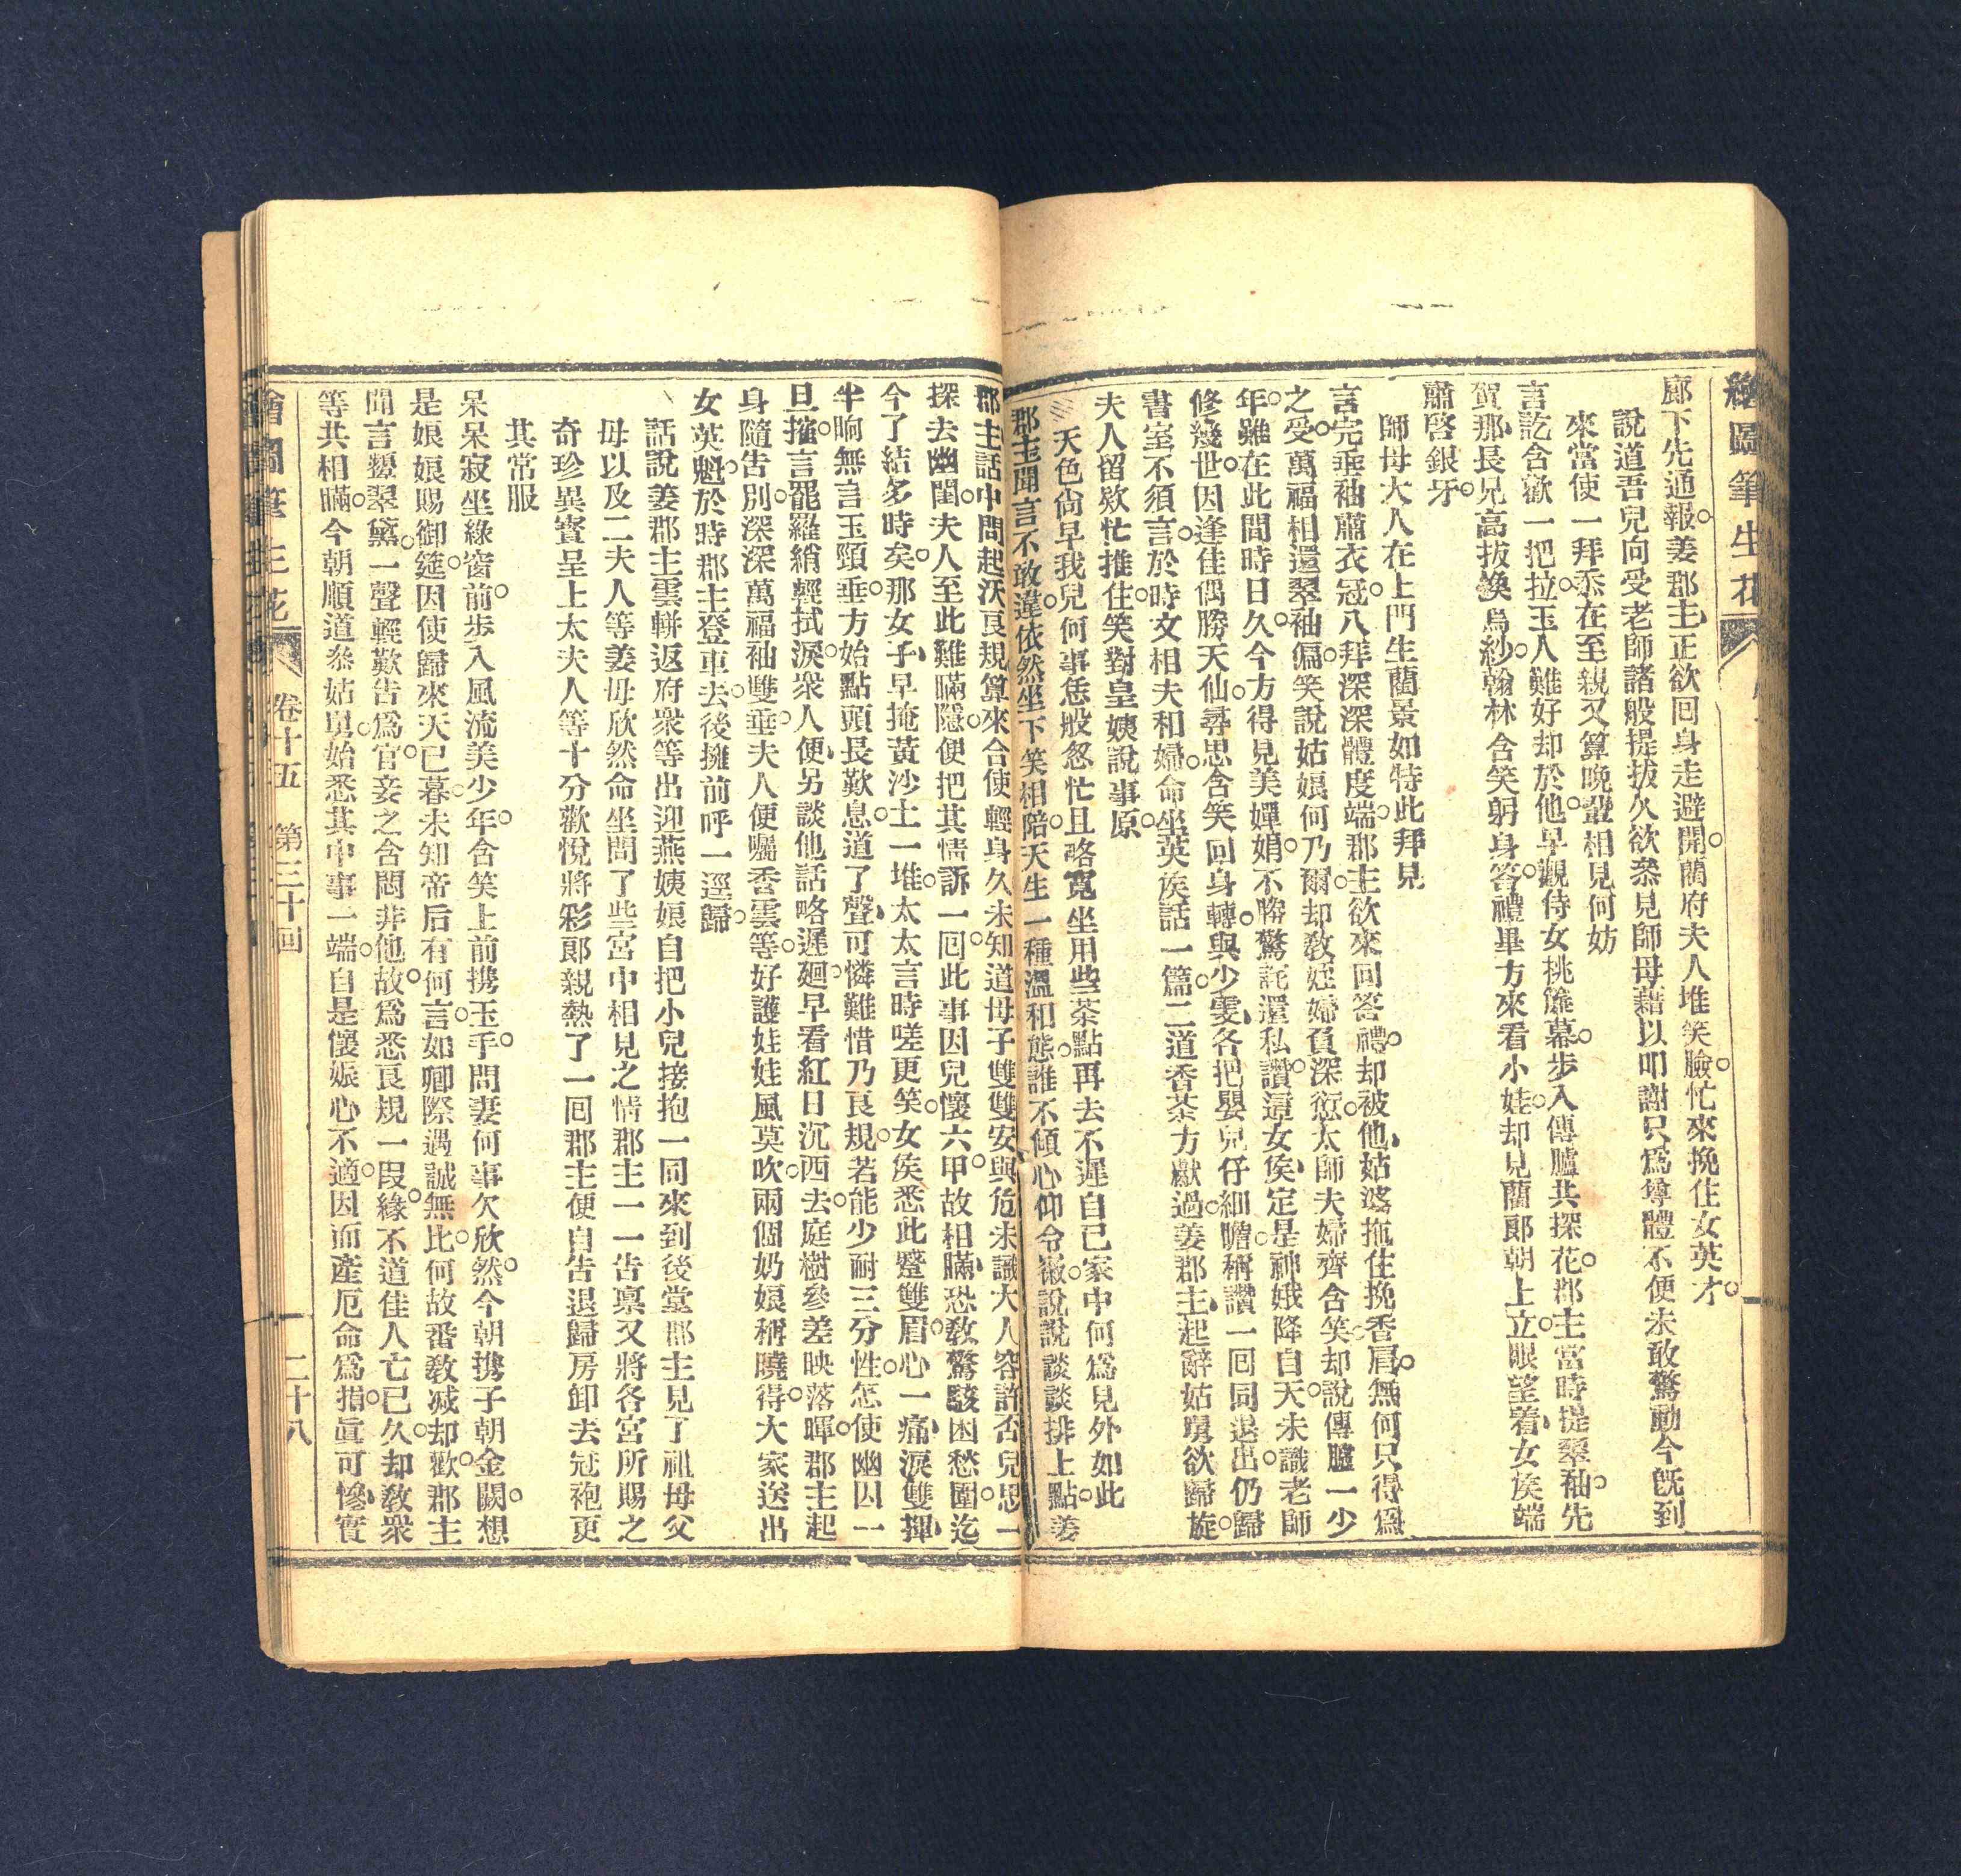 繪圖筆生花
廊下先通報。姜郡主正欲回身走避開。藺府夫人堆笑臉。忙來挽住女英才。
說道吾兒向受老師諸般提拔久欲叅見師母藉以叩謝只爲尊體不便未敢驚動今旣到
來當使一拜忝在至親又算晚輩相見何妨
言訖含歡一把拉。玉人難好却於他。早觀侍女挑簾幕。步入傳臚共探花。郡主當時提翠袖。先
賀那長兄高拔換烏紗。翰林含笑躬身答。禮畢方來看小娃。却見藺郎朝上立。眼望着女侯端
肅啓銀牙。
師母大人在上門生藺景如特此拜見
言完垂袖蕭衣冠。八拜深深體度端。郡主欲來回答禮。却被他姑婆拖住挽香肩。無何只得爲
之受。萬福相還翠袖偏。笑說姑娘何乃爾。却敎姪婦負深愆。太師夫婦齊含笑。却說傳臚一少
年。雖在此間時日久。今方得見美嬋娟。不勝驚詫還私讚。這女侯定是神娥降自天。未識老師
修幾世。因逢佳偶勝天仙。尋思含笑回身轉。與少雯各把嬰兒仔細瞻。稱讚一回同退出。仍歸
書室不須言。於時文相夫和婦。命坐英侯話一篇。二道香茶方獻過。姜郡主起辭姑璜欲歸旋。
夫人留欵忙推住。笑對皇姨說事原。
天色尙早我兒何事恁般忽忙且略寬坐用些茶點再去不遲自已家中何爲見外如此
郡主聞言不敢違。依然坐下笑相陪。天生一種溫和態。誰不傾心仰令徽。說說談談排上點。姜
郡主話中問起沃良規。算來合使輕身久。未知道母子雙雙安與危。未識大人容許否。兒思一
探去幽閨。夫人至此難瞞隱。便把其情訴一回。此事因兒懷六甲。故相瞞恐敎驚駭困愁圍。迄
今了結多時矣。那女子早掩黃沙土一堆。太太言時嗟更笑。女侯悉此蹙雙眉。心一痛淚雙揮。
半晌無言玉頸垂。方始點頭長歎息。道了聲可憐難惜乃良規。若能少耐三分性。怎使幽囚一
旦摧。言罷羅綃輕拭淚。衆人便另談他話略遲廻。早看紅日沉西去。庭樹參差映落暉。郡主起
身隨告別。深深萬福袖雙垂。夫人便囑香雲等。好護娃娃風莫吹。兩個奶娘稱曉得。大家送出
女英魁。於時郡主登車去。後擁前呼一逕歸。
話說姜郡主雲輧返府衆等出迎燕姨娘自把小兒接抱一同來到後堂郡主見了祖母父
母以及二夫人等姜母欣然命坐問了些宮中相見之情郡主一一告稟又將各宮所賜之
奇珍異寶呈上太夫人等十分歡悅將彩郞親熱了一回郡主便自告退歸房卸去冠袍更
其常服
呆呆寂坐綠窗前。步入風流美少年。含笑上前携玉手。問妻何事欠欣然。今朝携子朝金闕。想
是娘娘賜御筵。因使歸來天已暮。未知帝后有何言。如卿際遇誠無比。何故番敎减却歡。郡主
聞言顰翠黛。一聲輕歎告爲官。妾之含悶非他故。爲悉良規一段緣。不道佳人亡已久。却敎衆
等共相瞞。今朝順道叅姑舅。始悉其中事一端。自是懷娠心不適。因而產厄命爲捐。眞可慘實
繪圖筆生花 卷十五 第三十回 二十八